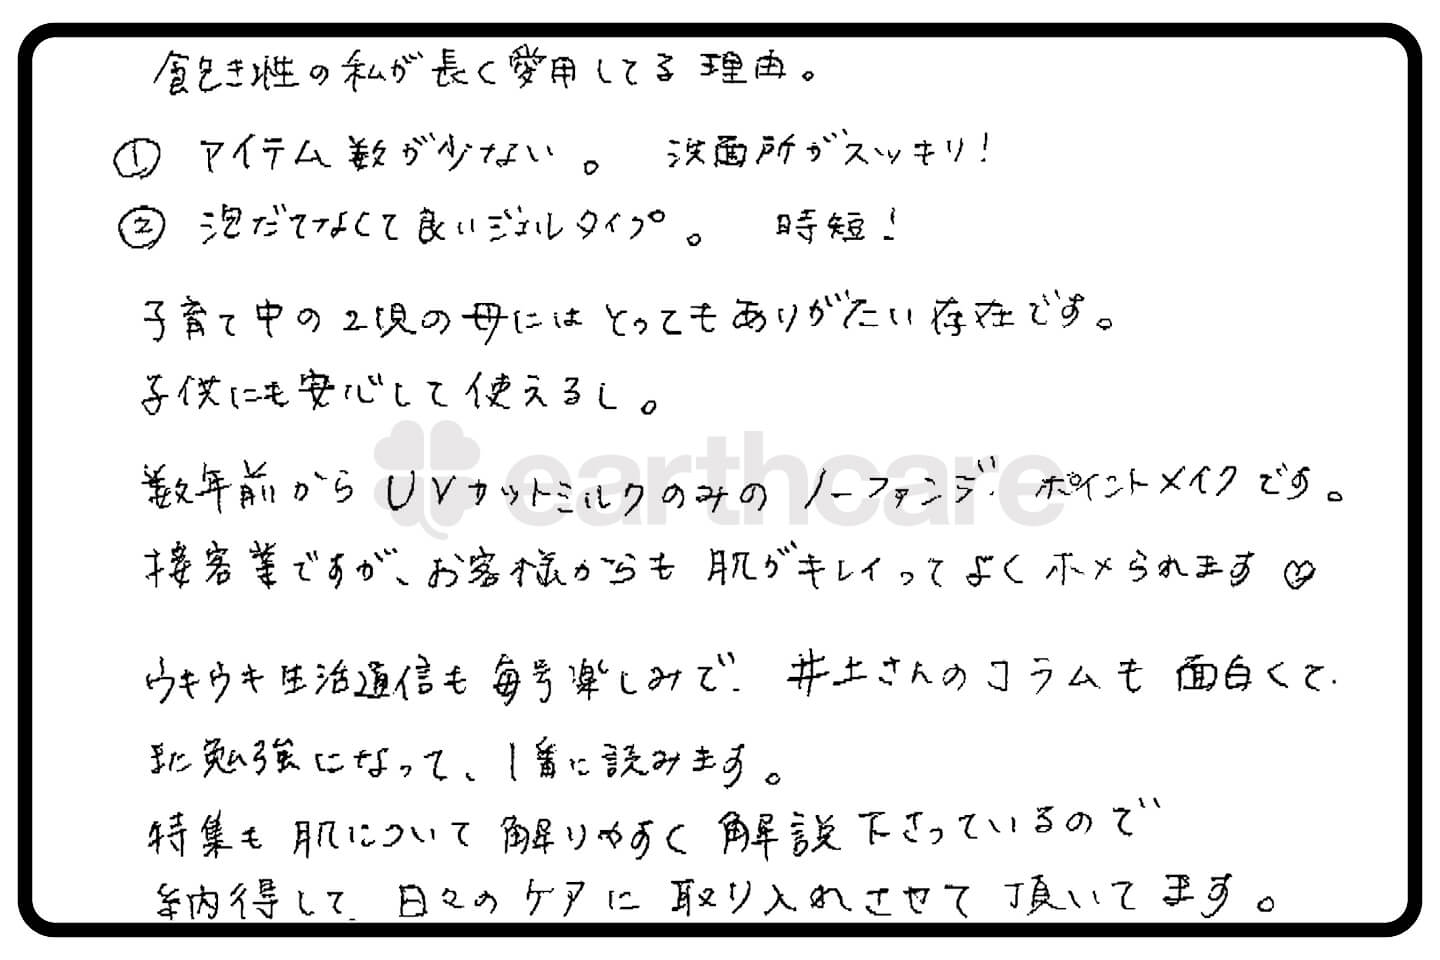 飽き性の私が長く愛用してる理由。
① アイテム数が少ない。 洗面所がスッキリ!
② 泡だてなくて良いジェルタイプ。 時短!
子育て中の2児の母にはとってもありがたい存在です。
子供にも安心して使えるし。
earthcare
数年前からUVカットミルクのみのノーファンデ、ポイントメイクです。
接客業ですが、お客様からも肌がキレイってよくホメられます♡
ウキウキ生活通信も毎号楽しみで、井土さんのコラムも面白くて、
また勉強になって、1番に読みます。
特集も肌について解りやすく解説下さっているので
納得して、日々のケアに取り入れさせて頂いてます。